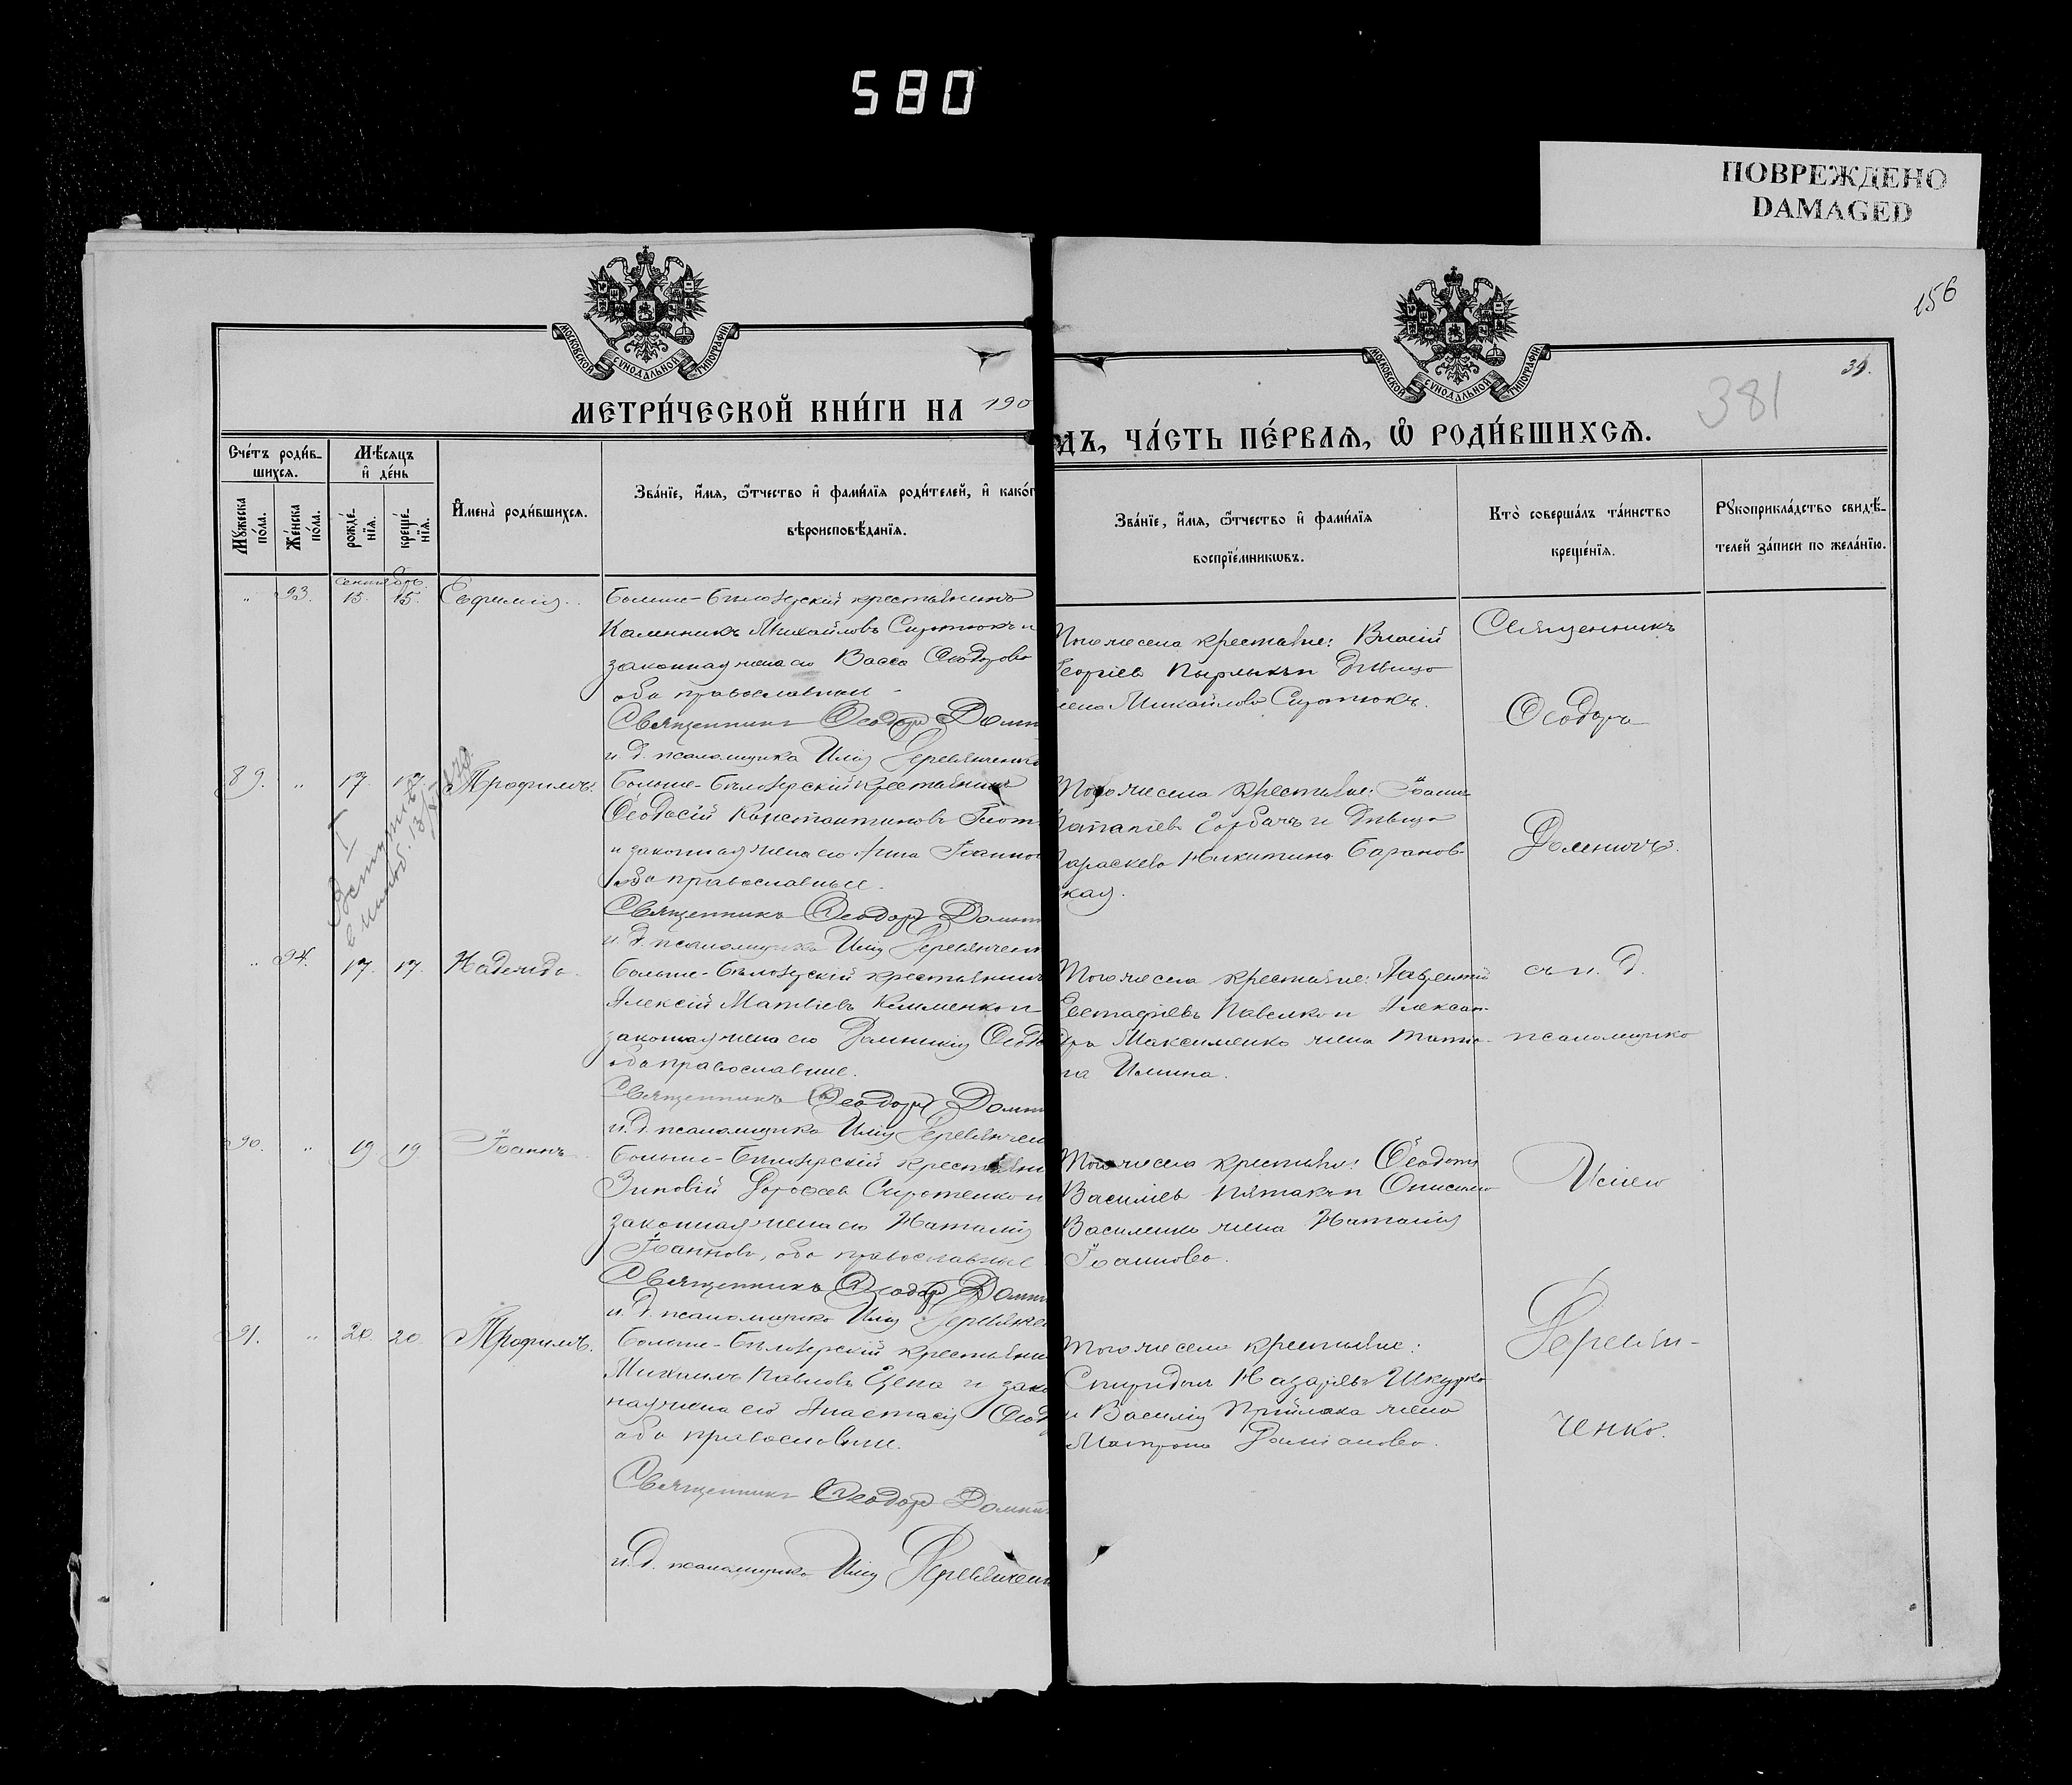 580
ПОВРЕЖДЕНО
DAMAGED
156
39.
381
МОСКОВСКОЙ СѴНОДАЛЬНОЙ ТИПОГРАФІИ
МОСКОВСКОЙ СѴНОДАЛЬНОЙ ТИПОГРАФІИ
МЕТРИ́ЧЕСКОЙ КНИ́ГИ НА 190
ДЪ, ЧА́СТЬ ПЕ́РВАЯ, Ѡ҆ РОДИ́ВШИХСЯ.
Сче́тъ роди́в-
шихся.
Мꙋжеска по́ла.
Же́нска по́ла.
Мѣ́сяцъ
и҆ де́нь
рожде́-
нїя.
креще́-
нїя.
И҆мена̀ роди́вшихся.
Зва́нїе, и҆́мя, ѻ҆́тчество и҆ фами́лїя роди́телей, и҆ како́г
вѣроисповѣ́данїя.
Зва́нїе, и҆́мя, ѻ҆́тчество и҆ фами́лїя
воспрїе́мникѡвъ.
Кто̀ соверша́лъ та́инство
креще́нїя.
Рꙋкоприкла́дство свидѣ́-
телей за́писи по жела́нїю.
сентябрь
„ 93. 15. 15. Евфимія.
Больше-Бѣлозерскій крестьянинъ
Каленникъ Михайловъ Сиротюкъ и
законная жена его Васса Ѳеодорова
оба православные
Священникъ Ѳеодоръ Домн
и. д. псаломщика Илія Деревянченко
Того же села крестьяне: Власій
Георгіевъ и дѣвица
Михайлова Сиротюкъ.
Священникъ
Ѳеодоръ
89. „ 17. 17. Трофимъ.
Больше-Бѣлозерскій крестьянинъ
Ѳеодосій Константиновъ
и законная жена его Анна Іоаннов
оба православные.
Священникъ Ѳеодоръ Домн
и. д. псаломщика Илія Деревянчен
Того же села крестьяне: Іоаннъ
Горбачъ и дѣвица
Параскева Никитина Баранов-
ская.
I
Вступилъ
„ 94. 17. 17. Надежда
Больше-Бѣлозерскій крестьянинъ
Алексій Матвіевъ Клименко и
законная жена его Домникія Ѳеод
оба православные.
Священникъ Ѳеодоръ Домн
и. д. псаломщика Илія Деревянчен
Того же села крестьяне: Лаврентій
Евстафіевъ Павелко и Алексан-
дра Максименко жена Татіа-
на Ильина.
съ и. д.
псаломщика
90. „ 19 19 Іоаннъ
Больше-Бѣлозерскій крестьяни
Зиновій Дороѳеевъ Сиротенко и
законная жена его Наталія
Іоаннова, оба православные
Священникъ Ѳеодоръ Домн
и. д. псаломщика Илія Деревянчен
Того же села крестьяне: Ѳеодотъ
Василіевъ Пятакъ и Онисима
Василенко жена Наталія
Іоаннова.
Иліею
91. „ 20. 20 Трофимъ.
Больше-Бѣлозерскій крестьяни
Михаилъ Павловъ Цепа и зако
ная жена его Анастасія Ѳеод
оба православные.
Священникъ Ѳеодоръ Домни
и. д. псаломщика Илія Деревянчен
Того же села крестьяне:
Спиридонъ Назаріевъ Шкурко
и Василія жена
Матрона Даміанова.
Деревян-
ченко.